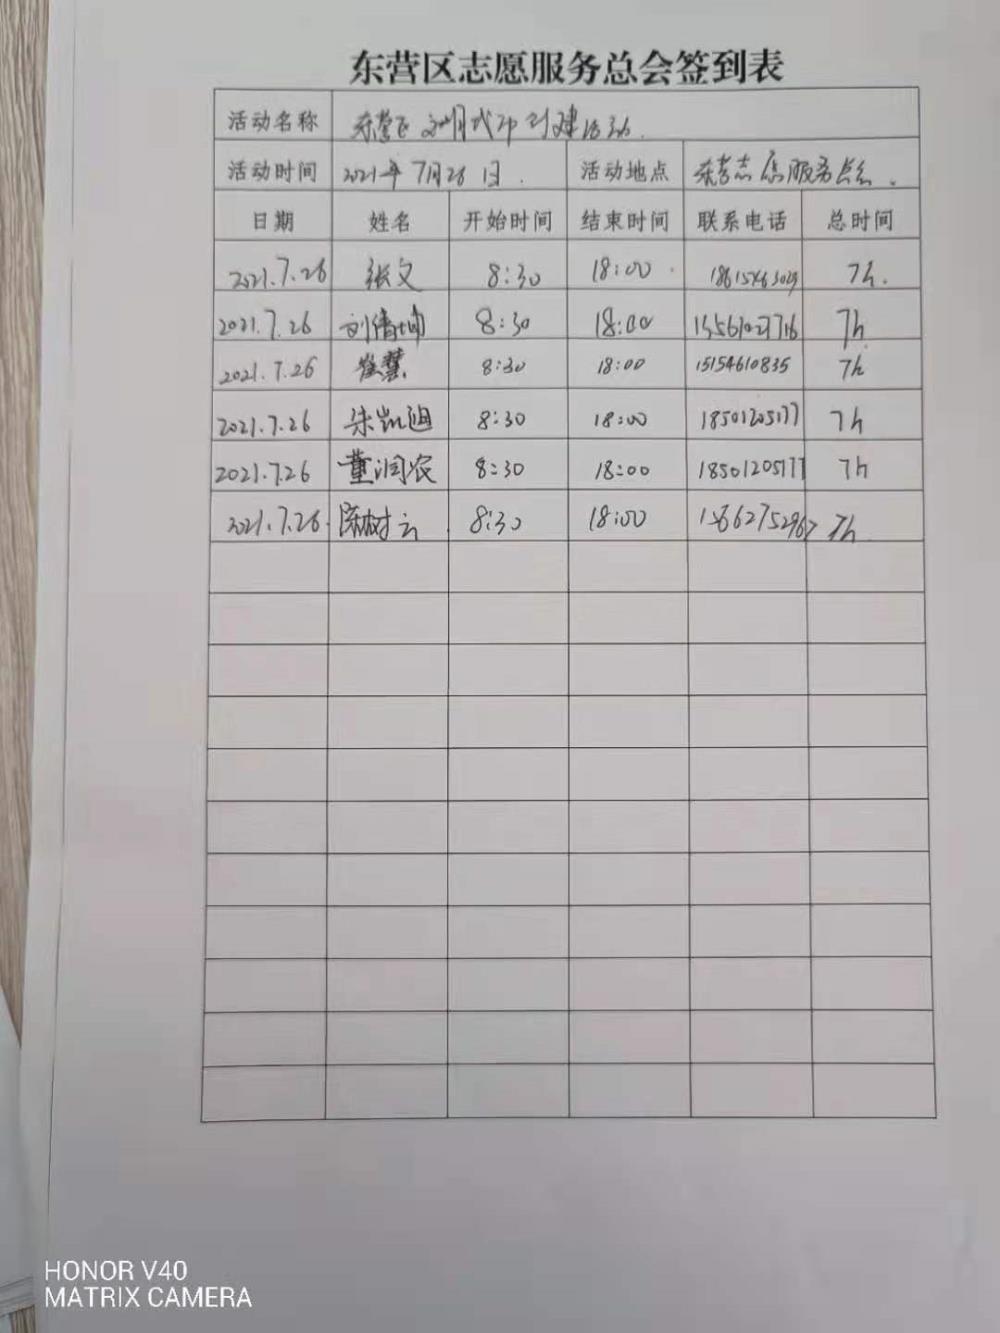 东营区志愿服务总会签到表
活动名称 东营区文明城市创建活动.
活动时间 2021年7月26日. 活动地点 东营志愿服务总会.
日期 姓名 开始时间 结束时间 联系电话 总时间
2021.7.26 张文 8:30 18:00 7h.
2021.7.26 8:30 18:00 15561027716 7h
2021.7.26 崔慧 8:30 18:00 15154610835 7h
2021.7.26 朱凯迪 8:30 18:00 18501205177 7h
2021.7.26 董润农 8:30 18:00 18501205177 7h
2021.7.26. 陈树云 8:30 18:00 15662752967 7h
HONOR V40
MATRIX CAMERA